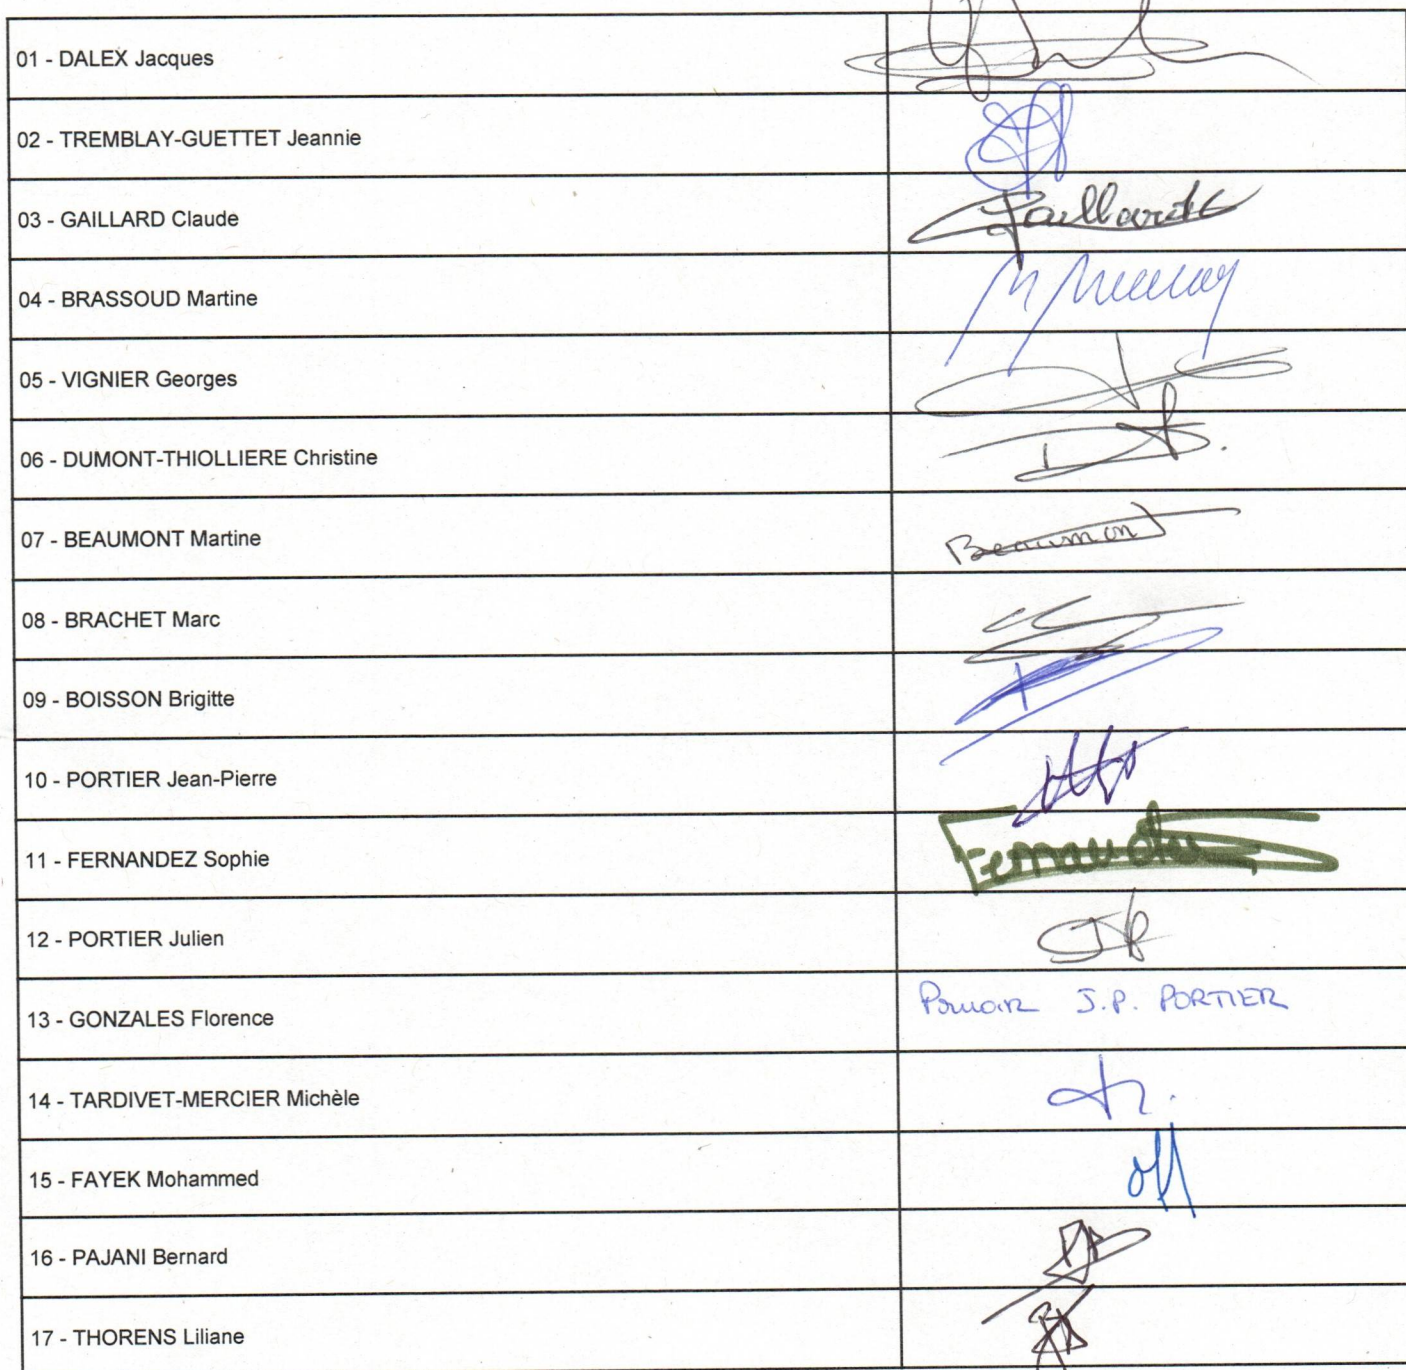 01 - DALEX Jacques
02 - TREMBLAY-GUETTET Jeannie
03 - GAILLARD Claude Gaillard
04 - BRASSOUD Martine
05 - VIGNIER Georges
06 - DUMONT-THIOLLIERE Christine
07 - BEAUMONT Martine Beaumont
08 - BRACHET Marc
09 - BOISSON Brigitte
10 - PORTIER Jean-Pierre
11 - FERNANDEZ Sophie Fernandez
12 - PORTIER Julien
13 - GONZALES Florence Pouvoir J.P. PORTIER
14 - TARDIVET-MERCIER Michèle
15 - FAYEK Mohammed
16 - PAJANI Bernard
17 - THORENS Liliane